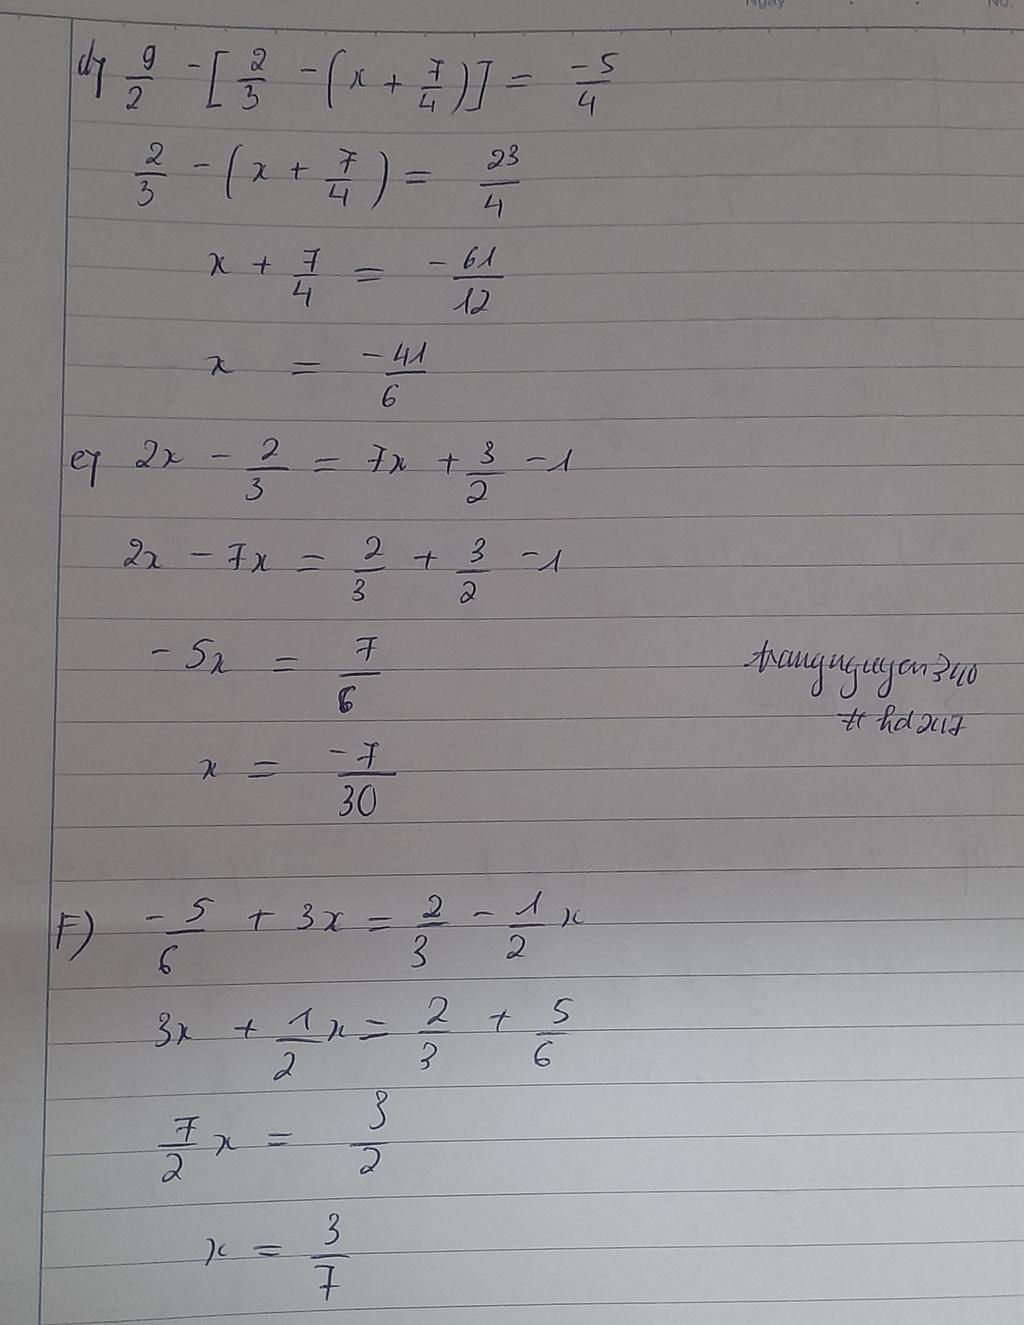 Ngày No.
d) 9/2 - [2/3 - (x + 7/4)] = -5/4
2/3 - (x + 7/4) = 23/4
x + 7/4 = -61/12
x = -41/6
e) 2x - 2/3 = 7x + 3/2 - 1
2x - 7x = 2/3 + 3/2 - 1
-5x = 7/6
x = -7/30
trangnguyen340
# hd247
F) -5/6 + 3x = 2/3 - 1/2 x
3x + 1/2 x = 2/3 + 5/6
7/2 x = 3/2
x = 3/7